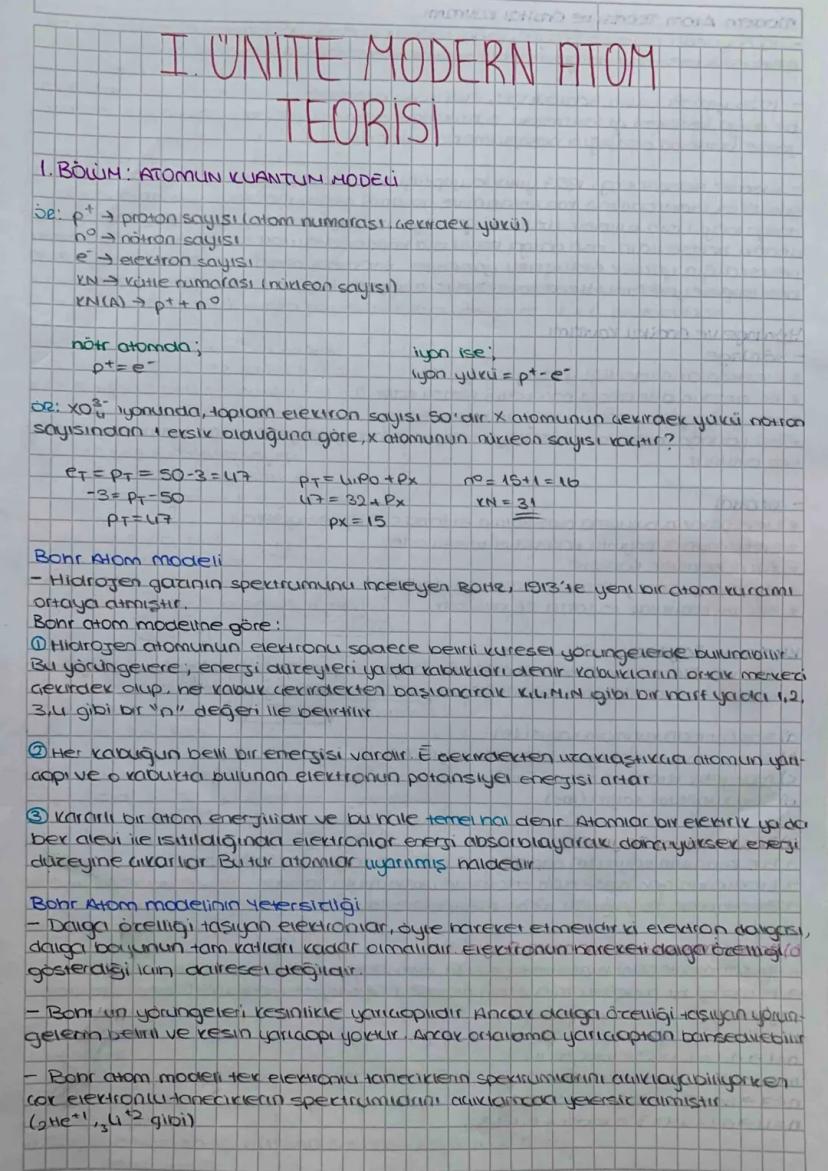 I. ÜNİTE MODERN ATOM
TEORİSİ
1. BÖLÜM: ATOMUN KUANTUM MODELİ
p⁺ → proton sayısı (atom numarası, çekirdek yükü)
n⁰ → nötron sayısı
e⁻ → elektron sayısı
KN → kütle numarası (nükleon sayısı)
KN(A) → p⁺ + n⁰
nötr atomda;
p⁺ = e⁻
iyon ise;
iyon yükü = p⁺ - e⁻
ÖR: XO₄³⁻ iyonunda, toplam elektron sayısı 50'dir. X atomunun çekirdek yükü nötron
sayısından 1 eksik olduğuna göre, X atomunun nükleon sayısı kaçtır?
eT = pT = 50-3 = 47
-3 = pT - 50
pT = 47
pT = 4.PO + Px
47 = 32 + Px
px = 15
n⁰ = 15+1 = 16
KN = 31
Bohr Atom modeli
- Hidrojen gazının spektrumunu inceleyen BOHR, 1913'te yeni bir atom kuramı
ortaya atmıştır.
Bohr atom modeline göre:
① Hidrojen atomunun elektronu sadece belirli küresel yörüngelerde bulunabilir.
Bu yörüngelere; enerji düzeyleri ya da kabukları denir. Kabukların ortak merkezi
çekirdek olup, her kabuk çekirdekten başlanarak K,L,M,N gibi bir harf ya da 1,2,
3,4 gibi bir "n" değeri ile belirtilir.
② Her kabuğun belli bir enerjisi vardır. E çekirdekten uzaklaştıkça atomun yarı-
çapı ve o kabukta bulunan elektronun potansiyel enerjisi artar
③ Kararlı bir atom enerjilidir ve bu hale temel hal denir. Atomlar bir elektrik ya da
bek alevi ile ısıtıldığında elektronlar enerji absorblayarak daha yüksek enerji
düzeyine çıkarlar. Bu tür atomlar uyarılmış haldedir.
Bohr Atom modelinin Yetersizliği
- Dalga özelliği taşıyan elektronlar, öyle hareket etmelidir ki elektron dalgası,
dalga boyunun tam katları kadar olmalıdır. Elektronun hareketi dalga özelliği
gösterdiği için dairesel değildir.
- Bohr'un yörüngeleri kesinlikle yarıçaplıdır. Ancak dalga özelliği taşıyan yörün-
gelerin belirli ve kesin yarıçapı yoktur. Ancak ortalama yarıçaptan bahsedilebilir
- Bohr atom modeli tek elektronlu taneciklerin spektrumlarını açıklayabiliyorken
çok elektronlu taneciklerin spektrumlarını açıklamada yetersiz kalmıştır.
(₂He⁺¹, ₃Li⁺² gibi)